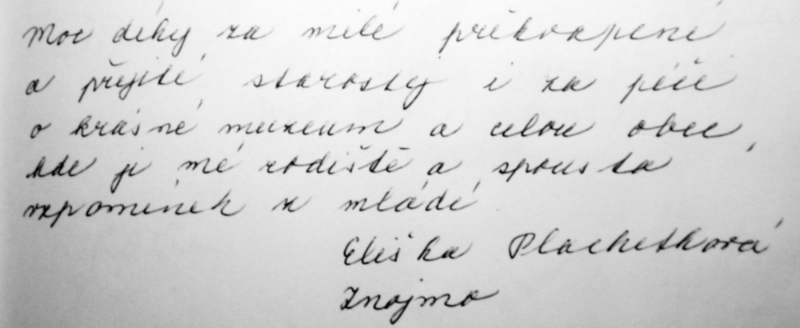 Moc díky za milé překvapení
a přijetí starosty i za péči
o krásné muzeum a celou obec,
kde je mé rodiště a spousta
vzpomínek z mládí
Eliška Plachetková
Znojmo